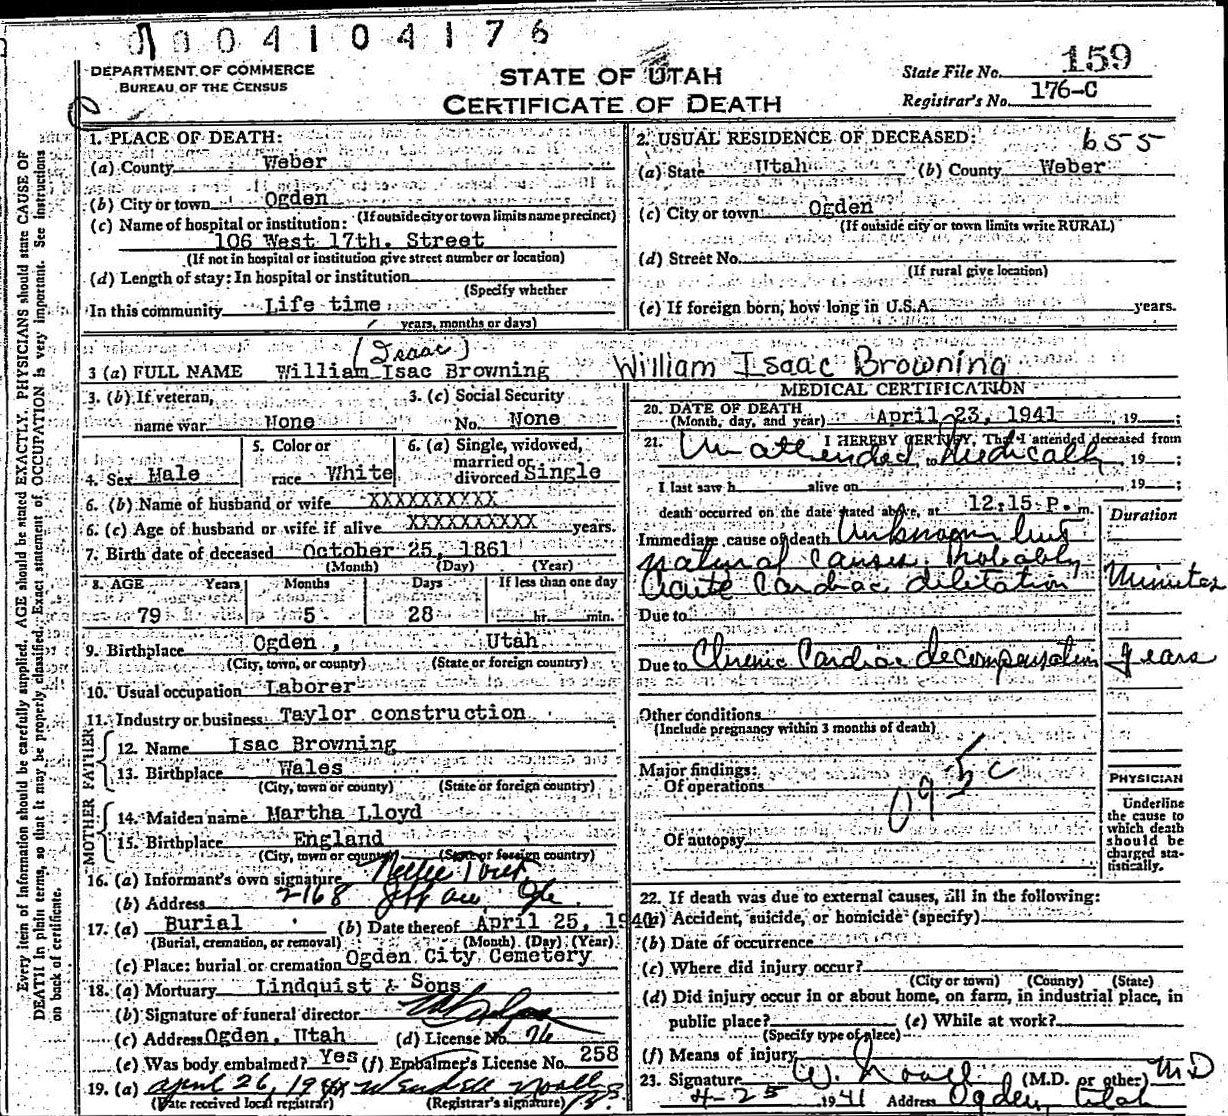 0004104176
DEPARTMENT OF COMMERCE
BUREAU OF THE CENSUS
STATE OF UTAH
CERTIFICATE OF DEATH
State File No. 159
Registrar's No. 176-C
Every item of information should be carefully supplied. AGE should be stated EXACTLY. PHYSICIANS should state CAUSE OF
DEATH in plain terms, so that it may be properly classified. Exact statement of OCCUPATION is very important. See instructions
on back of certificate.
1. PLACE OF DEATH:
(a) County Weber
(b) City or town Ogden
(If outside city or town limits name precinct)
(c) Name of hospital or institution:
106 West 17th. Street
(If not in hospital or institution give street number or location)
(d) Length of stay: In hospital or institution
(Specify whether
In this community Life time
years, months or days)
2. USUAL RESIDENCE OF DECEASED: 655
(a) State Utah (b) County Weber
(c) City or town Ogden
(If outside city or town limits write RURAL)
(d) Street No.
(If rural give location)
(e) If foreign born, how long in U.S.A. years.
(Isaac)
3 (a) FULL NAME William Isac Browning William Isaac Browning
3. (b) If veteran, 3. (c) Social Security
name war None No. None
4. Sex Male
5. Color or
race White
6. (a) Single, widowed,
married or
divorced Single
6. (b) Name of husband or wife XXXXXXXXXX
6. (c) Age of husband or wife if alive XXXXXXXXXX years.
7. Birth date of deceased October 25, 1861
(Month) (Day) (Year)
8. AGE Years Months Days If less than one day
79 5 28 hr. min.
9. Birthplace Ogden, Utah
(City, town, or county) (State or foreign country)
10. Usual occupation Laborer
11. Industry or business Taylor construction
FATHER
12. Name Isac Browning
13. Birthplace Wales
(City, town or county) (State or foreign country)
MOTHER
14. Maiden name Martha Lloyd
15. Birthplace England
(City, town or county) (State or foreign country)
16. (a) Informant's own signature Nellie
(b) Address 2168 Jeff ave
17. (a) Burial (b) Date thereof April 25, 1940
(Burial, cremation, or removal) (Month) (Day) (Year)
(c) Place: burial or cremation Ogden City Cemetery
18. (a) Mortuary Lindquist & Sons
(b) Signature of funeral director
(c) Address Ogden, Utah (d) License No. 76
(e) Was body embalmed? Yes (f) Embalmer's License No. 258
19. (a) April 26, 1941 Wendell Noall
(Date received local registrar) (Registrar's signature)
MEDICAL CERTIFICATION
20. DATE OF DEATH
(Month, day, and year) April 23, 1941 , 19 ;
21. I HEREBY CERTIFY, That I attended deceased from
Unattended to Medically , 19 ;
I last saw h alive on , 19 ;
death occurred on the date stated above, at 12:15 P. m.
Duration
Immediate cause of death Unknown but
natural causes. Probably
acute cardiac dilitation Minutes
Due to
Due to Chronic Cardiac decompensation years
Other conditions
(Include pregnancy within 3 months of death)
Major findings:
Of operations
095c
Of autopsy
PHYSICIAN
Underline
the cause to
which death
should be
charged sta-
tistically.
22. If death was due to external causes, fill in the following:
(a) Accident, suicide, or homicide (specify)
(b) Date of occurrence
(c) Where did injury occur?
(City or town) (County) (State)
(d) Did injury occur in or about home, on farm, in industrial place, in
public place? (e) While at work?
(Specify type of place)
(f) Means of injury
23. Signature W. J. Noall (M.D. or other) M D
4-25 1941 Address Ogden, Utah